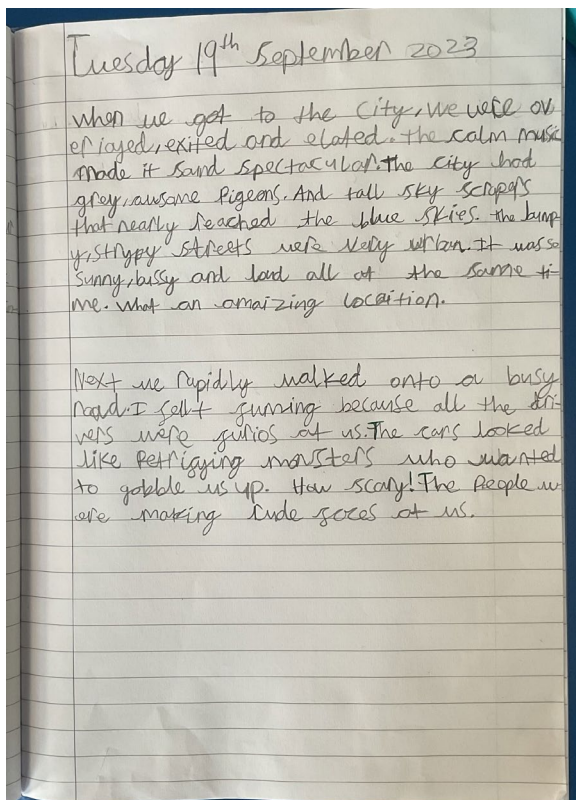 Tuesday 19th September 2023
when we got to the City, we were ov
erjoyed, exited and elated. the calm music
made it sound spectacular. the city had
grey, awsome pigeons. And tall sky scrapers
that nearly reached the blue skies. the bump
y, strypy streets were very urban. It was so
sunny, bussy and loud all at the same ti-
me. What an amaizing locaition.
Next we rapidly walked onto a busy
road. I felt fuming because all the dri-
vers were furios at us. The cars looked
like petrifying monsters who wanted
to gobble us up. How scary! The people w
ere making rude faces at us.